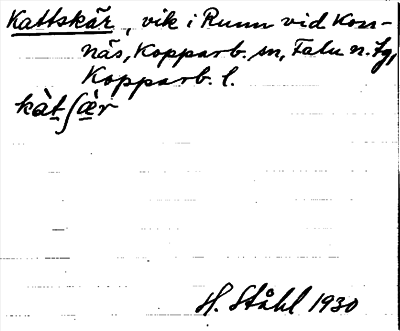 Kattskär, vik i Runn vid Kors-
näs, Kopparb. sn, Falu n. tg,
Kopparb. l.
kàtʃæ̀r
H. Ståhl 1930